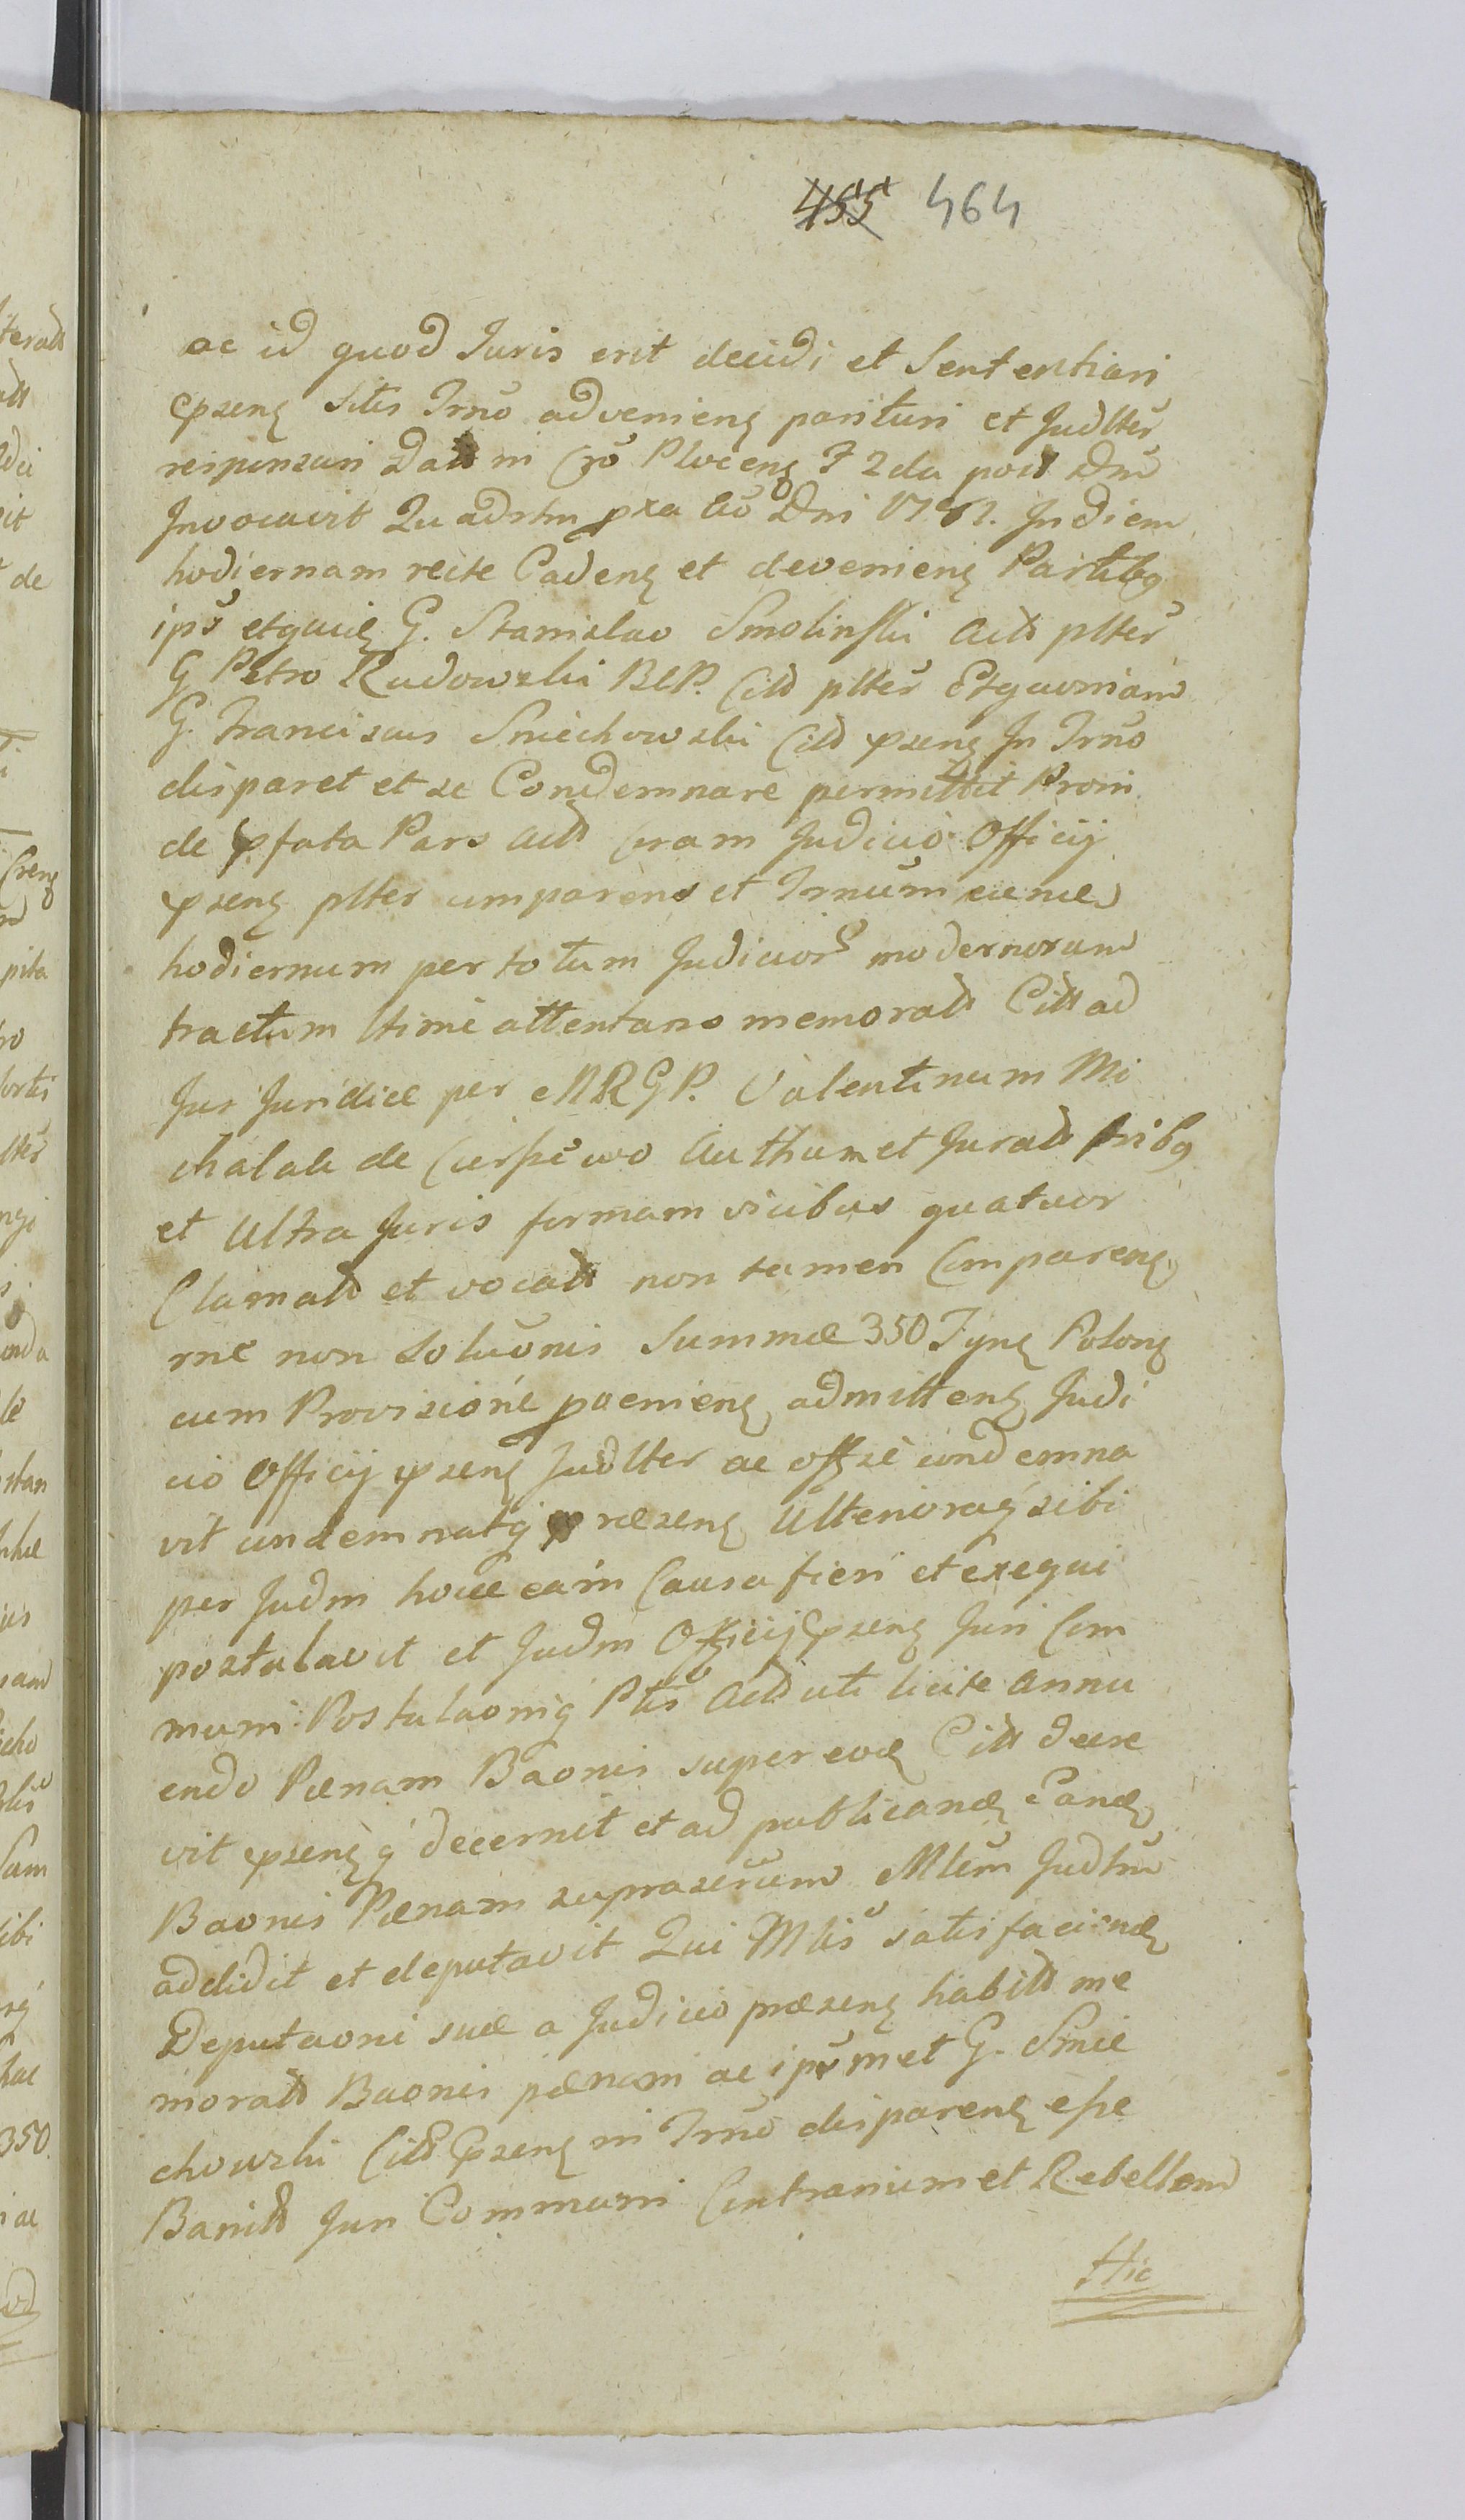 455 464
ac id quod Juris erit decidi et Sententiari
pzenę Sitis Trnō advenienę parituri et Judlter
responsuri Datt in Crō Plocenę F 2da post Dnū
Invocavit Quadrlm pxa Aō Dni 1761. In diem
hodiernam recte Cadenę et devenienę Partibg
ips etquidę G. Stanislao Smolinski Actt plter
G Petro Rudowzki BCP. Citt plter Etquoniam
G. Franciscus Sniechowzki Citt pzenę In Trnō
disparet et se Condemnare permittit Proin
de pfata Pars Actt Coram Judicio Officij
pzenę plter comparens et Trnum eunde
hodiernum per totum Judicior modernorum
tractum ltime attentans memoratt Citt ad
Jus Juridice per MRGP. Valentinum Mi
chalak de Cierpiewo Authum et Juratt tribg
et Ultra Juris formam vicibus quatuor
Clamatt et vocatt non tamen Comparenę
rne non Soluōnis Summæ 350 Fynę Polonę
cum Provisione pvenienę admittenę Judi
cio Officij pzenę Judlter ac offse condemna
vit condemnatq præzenę Ulterioraq sibi
per Judm hocce eain Causa fieri et exequi
postulavit et Judm Officij pzenę Juri Com
muni Postulaoniq Ptis Actt uti licite annu
endo Pænam Baonis super eodę Citt decre
vit pzenęq decernit et ad publicandę Eandę
Baonis Pænam suprascrum Mlem Judlm
addidit et deputavit Qui Mlis satisfaciendę
Deputaoni suæ a Judicio præzenę habitt me
moratt Baonis pænam ac ipsmet G. Snie
chowzki Citt pzenę in Trnō disparenę esse
Banitt Juri Communi Contrarium et Rebellem
Hic